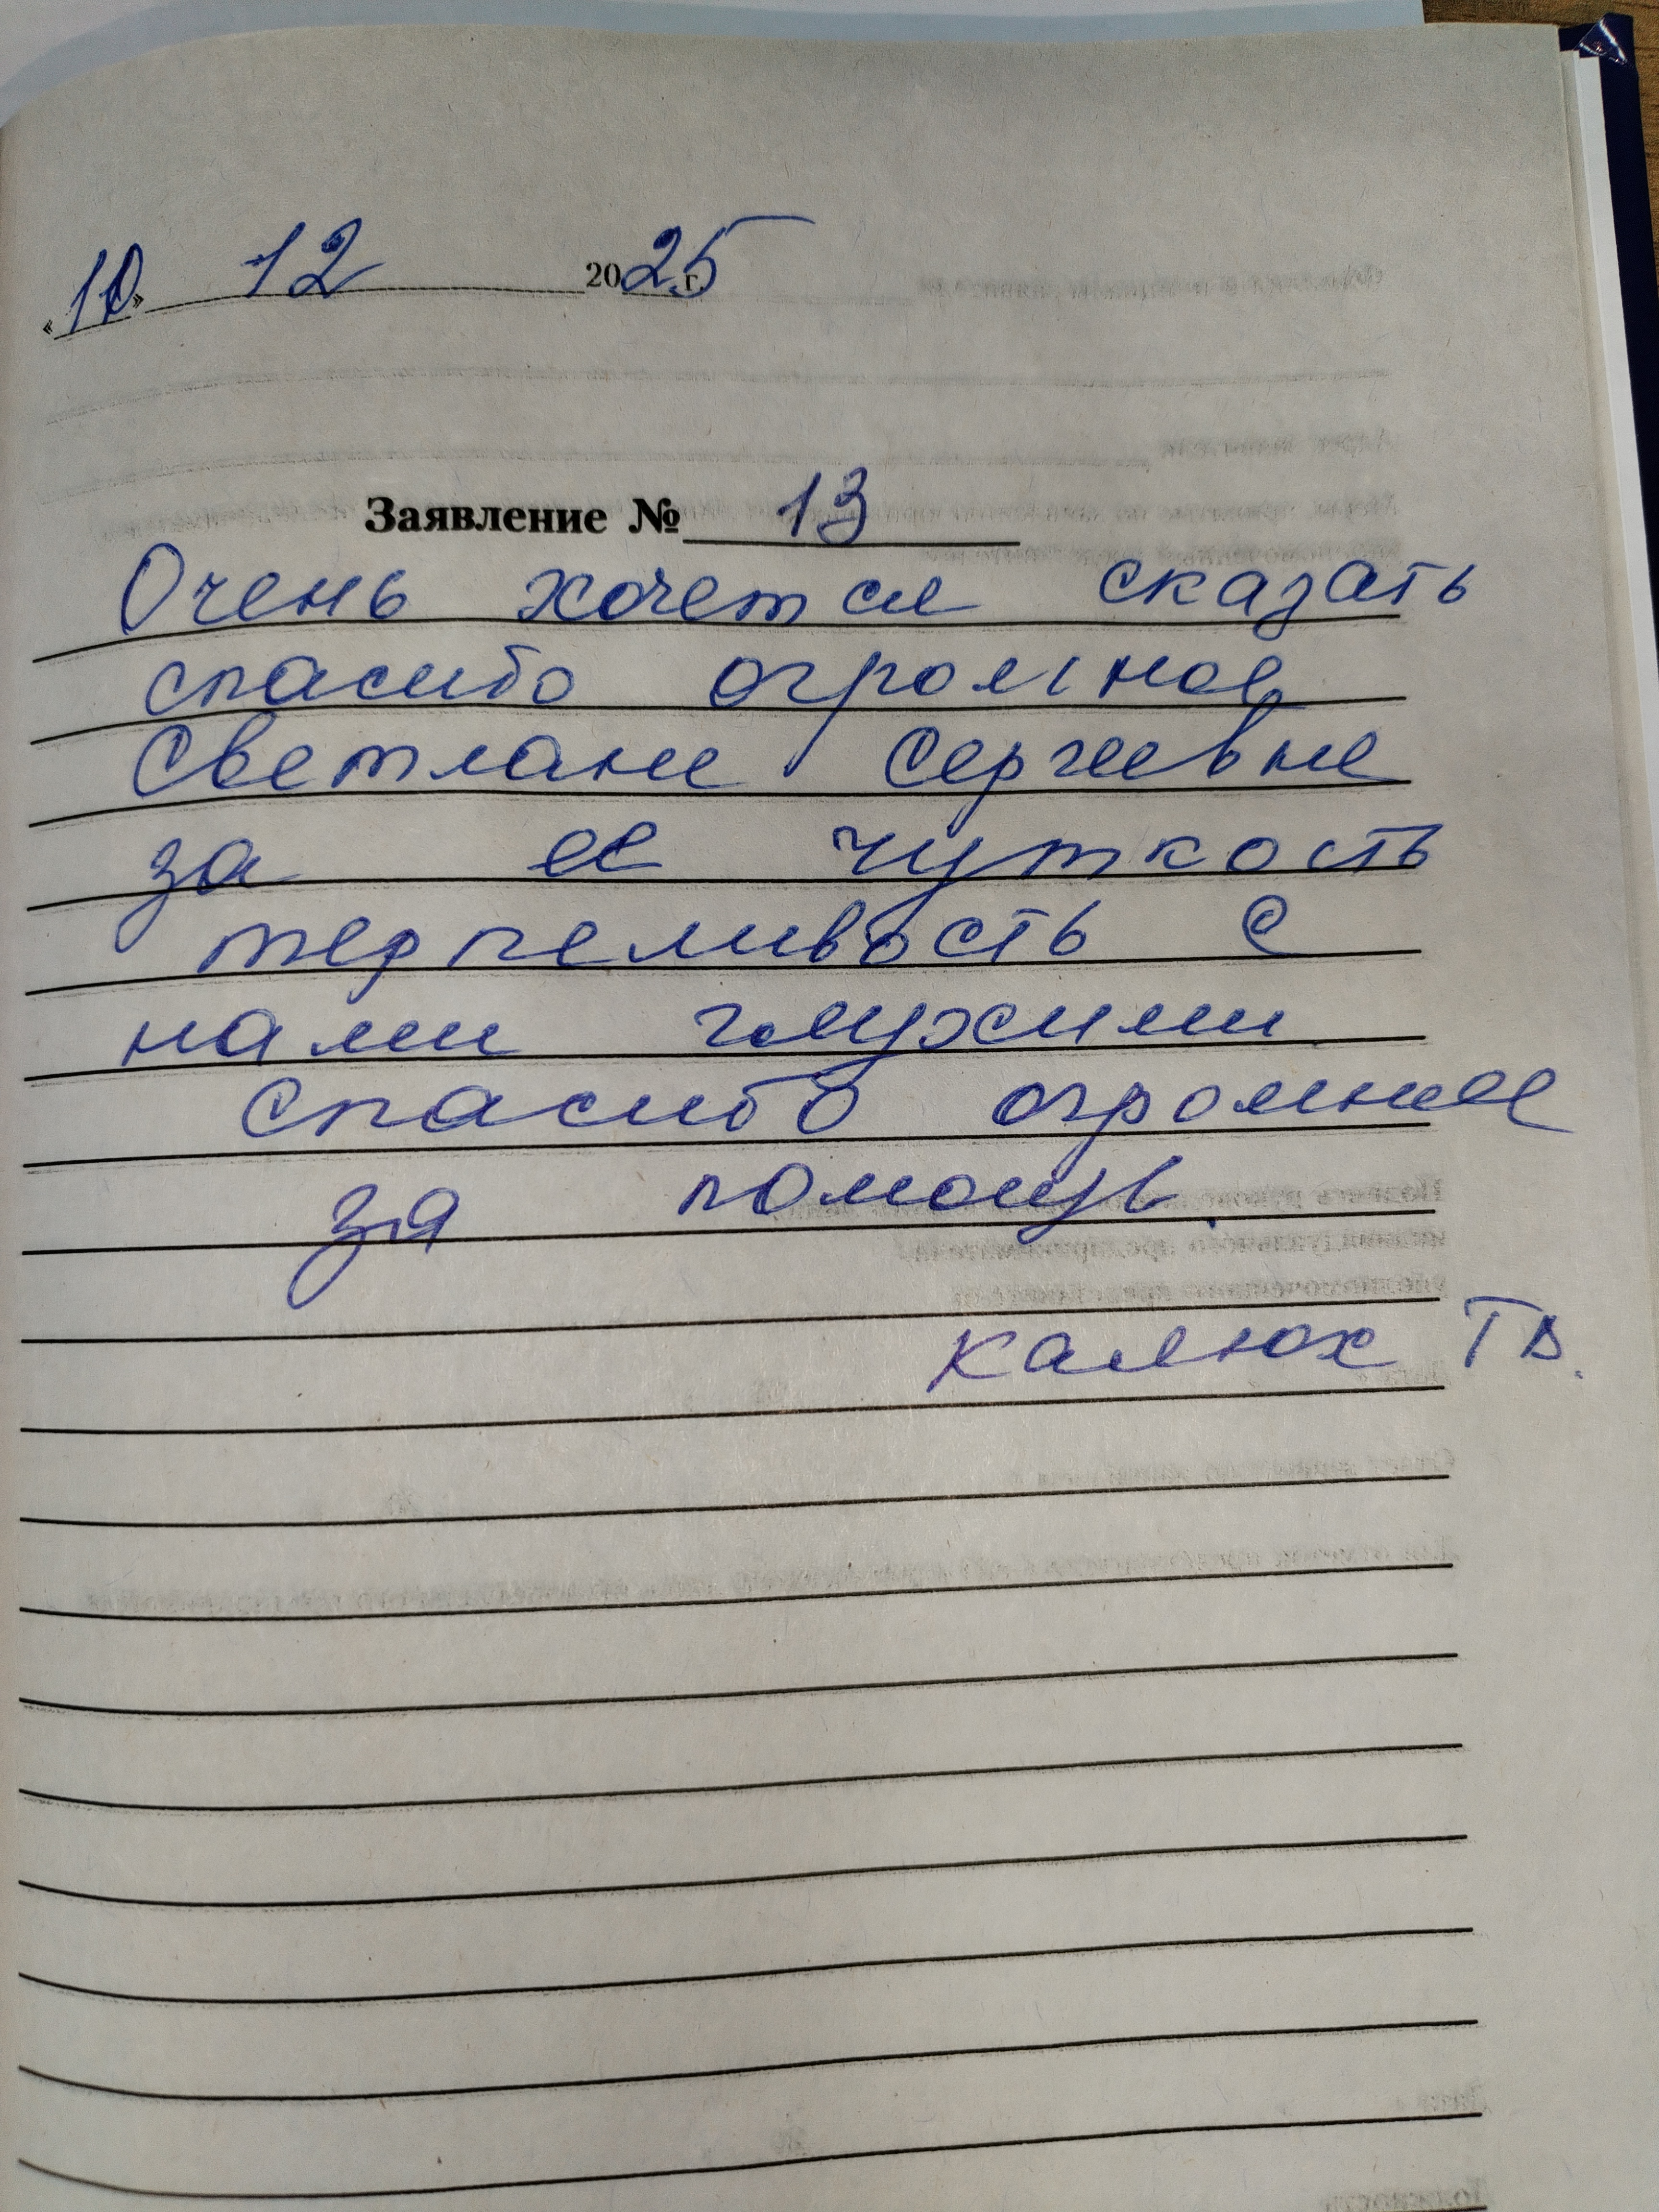 «10» 12 2025 г.
Заявление № 13
Очень хочется сказать
спасибо огромное
Светлане Сергеевне
за ее чуткость
терпеливость с
нами глухими
спасибо огромнее
за помощь.
Калюх Т В.